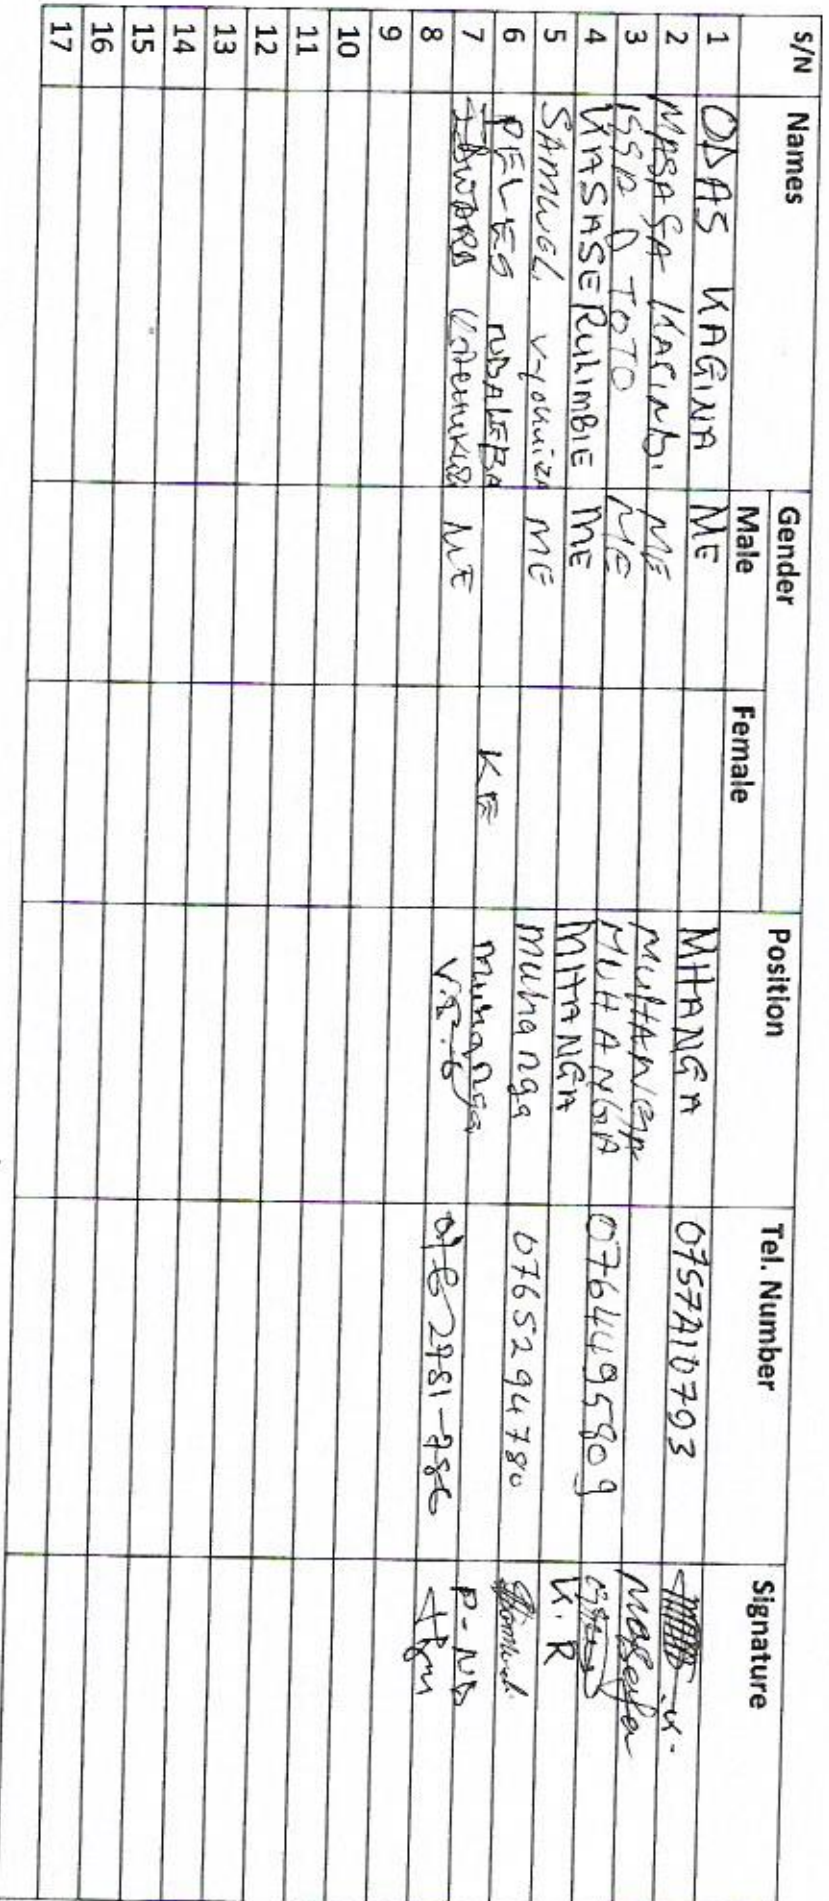 Gender
S/N Names Male Female Position Tel. Number Signature
1 ODAS KAGINA ME MHANGA 0757A10793
2 MASASA KACINDI ME MUHANGA Masasa
3 ISSA D TOTO ME MUHANGA 0764495909
4 KASHASERUHIMBIE ME MHANGA K.R
5 SAMWEL ME Muhanga 0765294780
6 PELES NDALEBA KE Muhanga P-ND
7 EDWARD ME
8
9
10
11
12
13
14
15
16
17